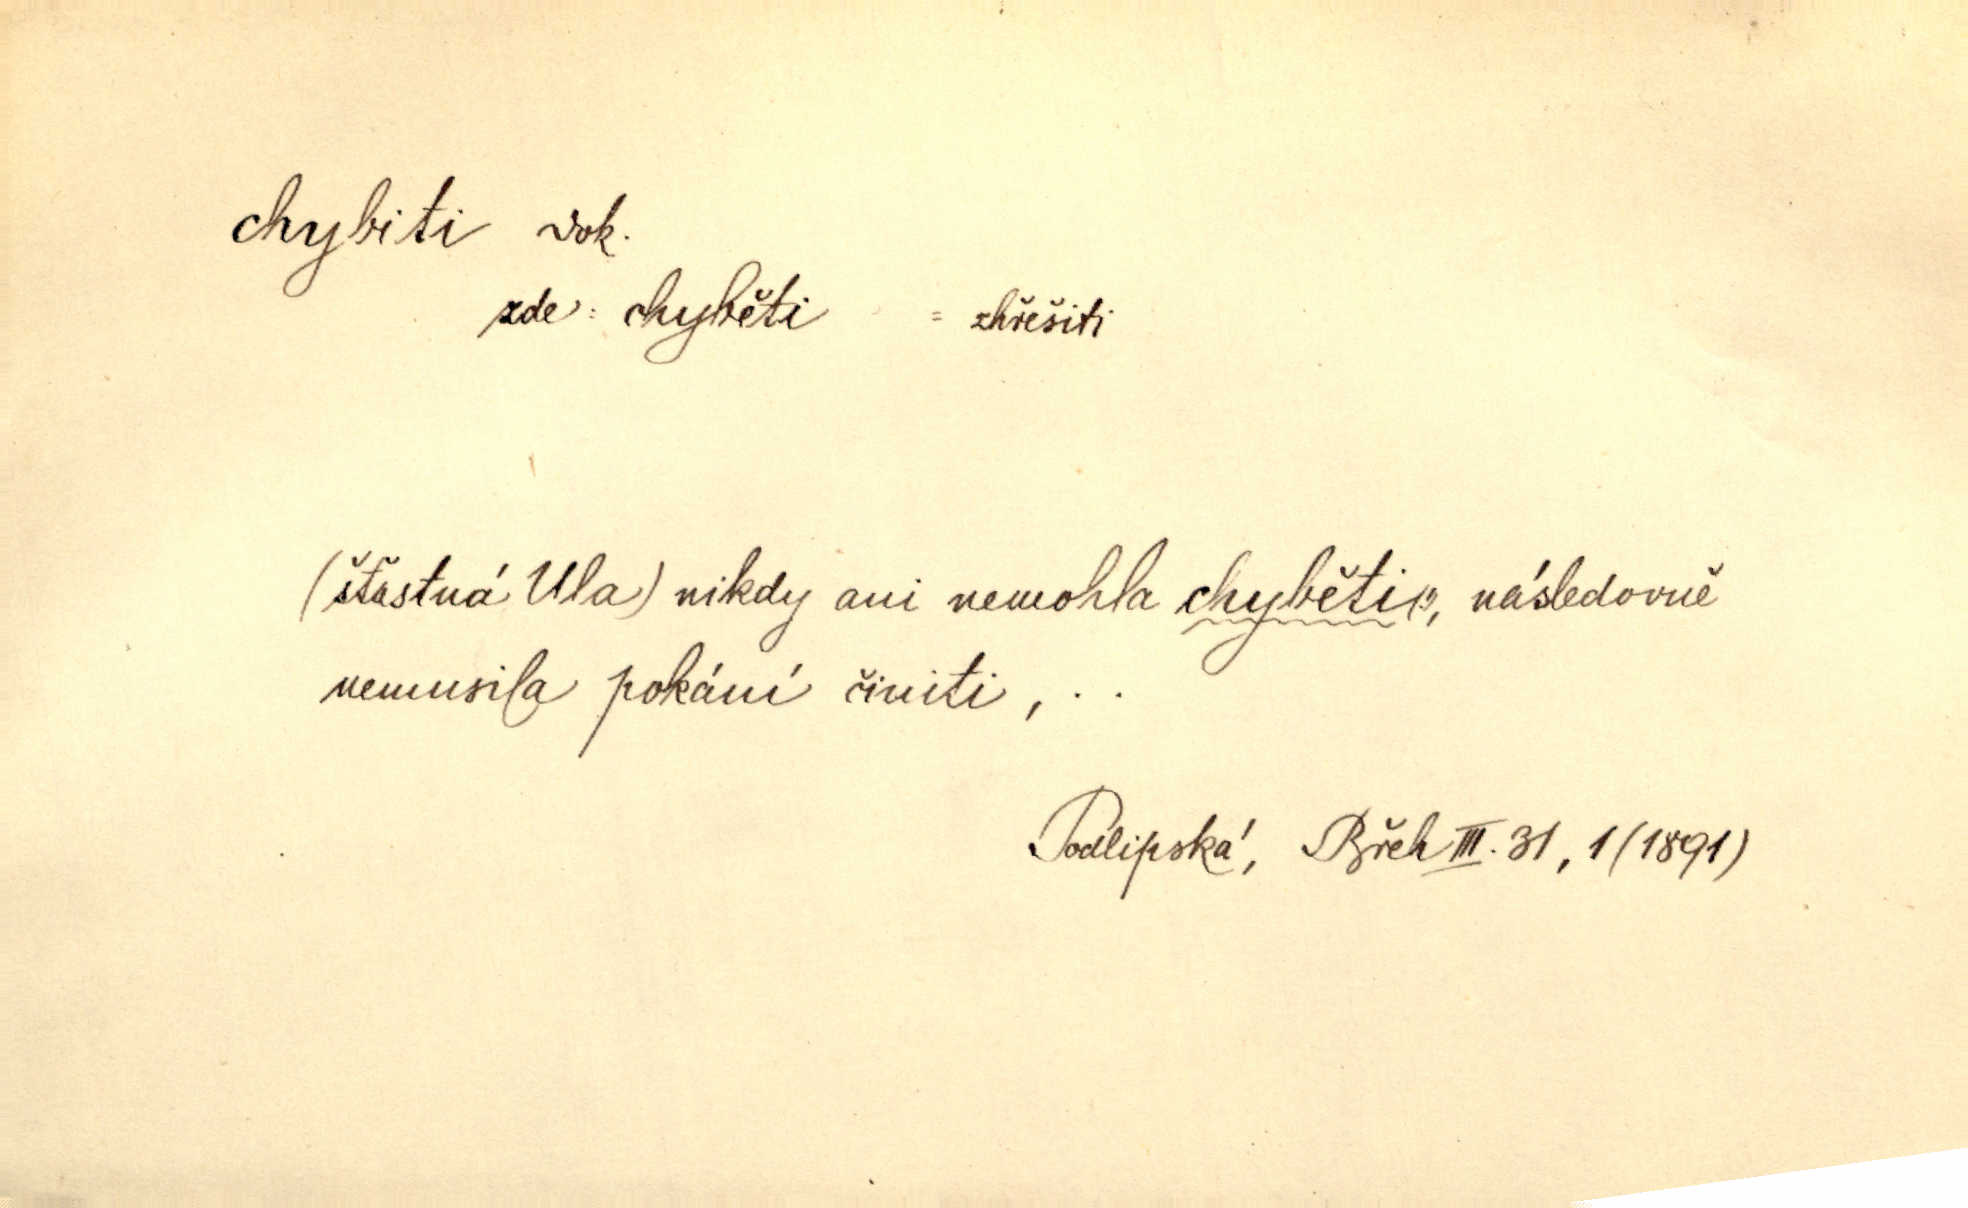 chybiti dok.
zde: chyběti = zhřešiti
(šťastná Ula) nikdy ani nemohla chyběti(!), následovně
nemusila pokání činiti, ..
Podlipská, Břeh III. 31, 1 (1891)